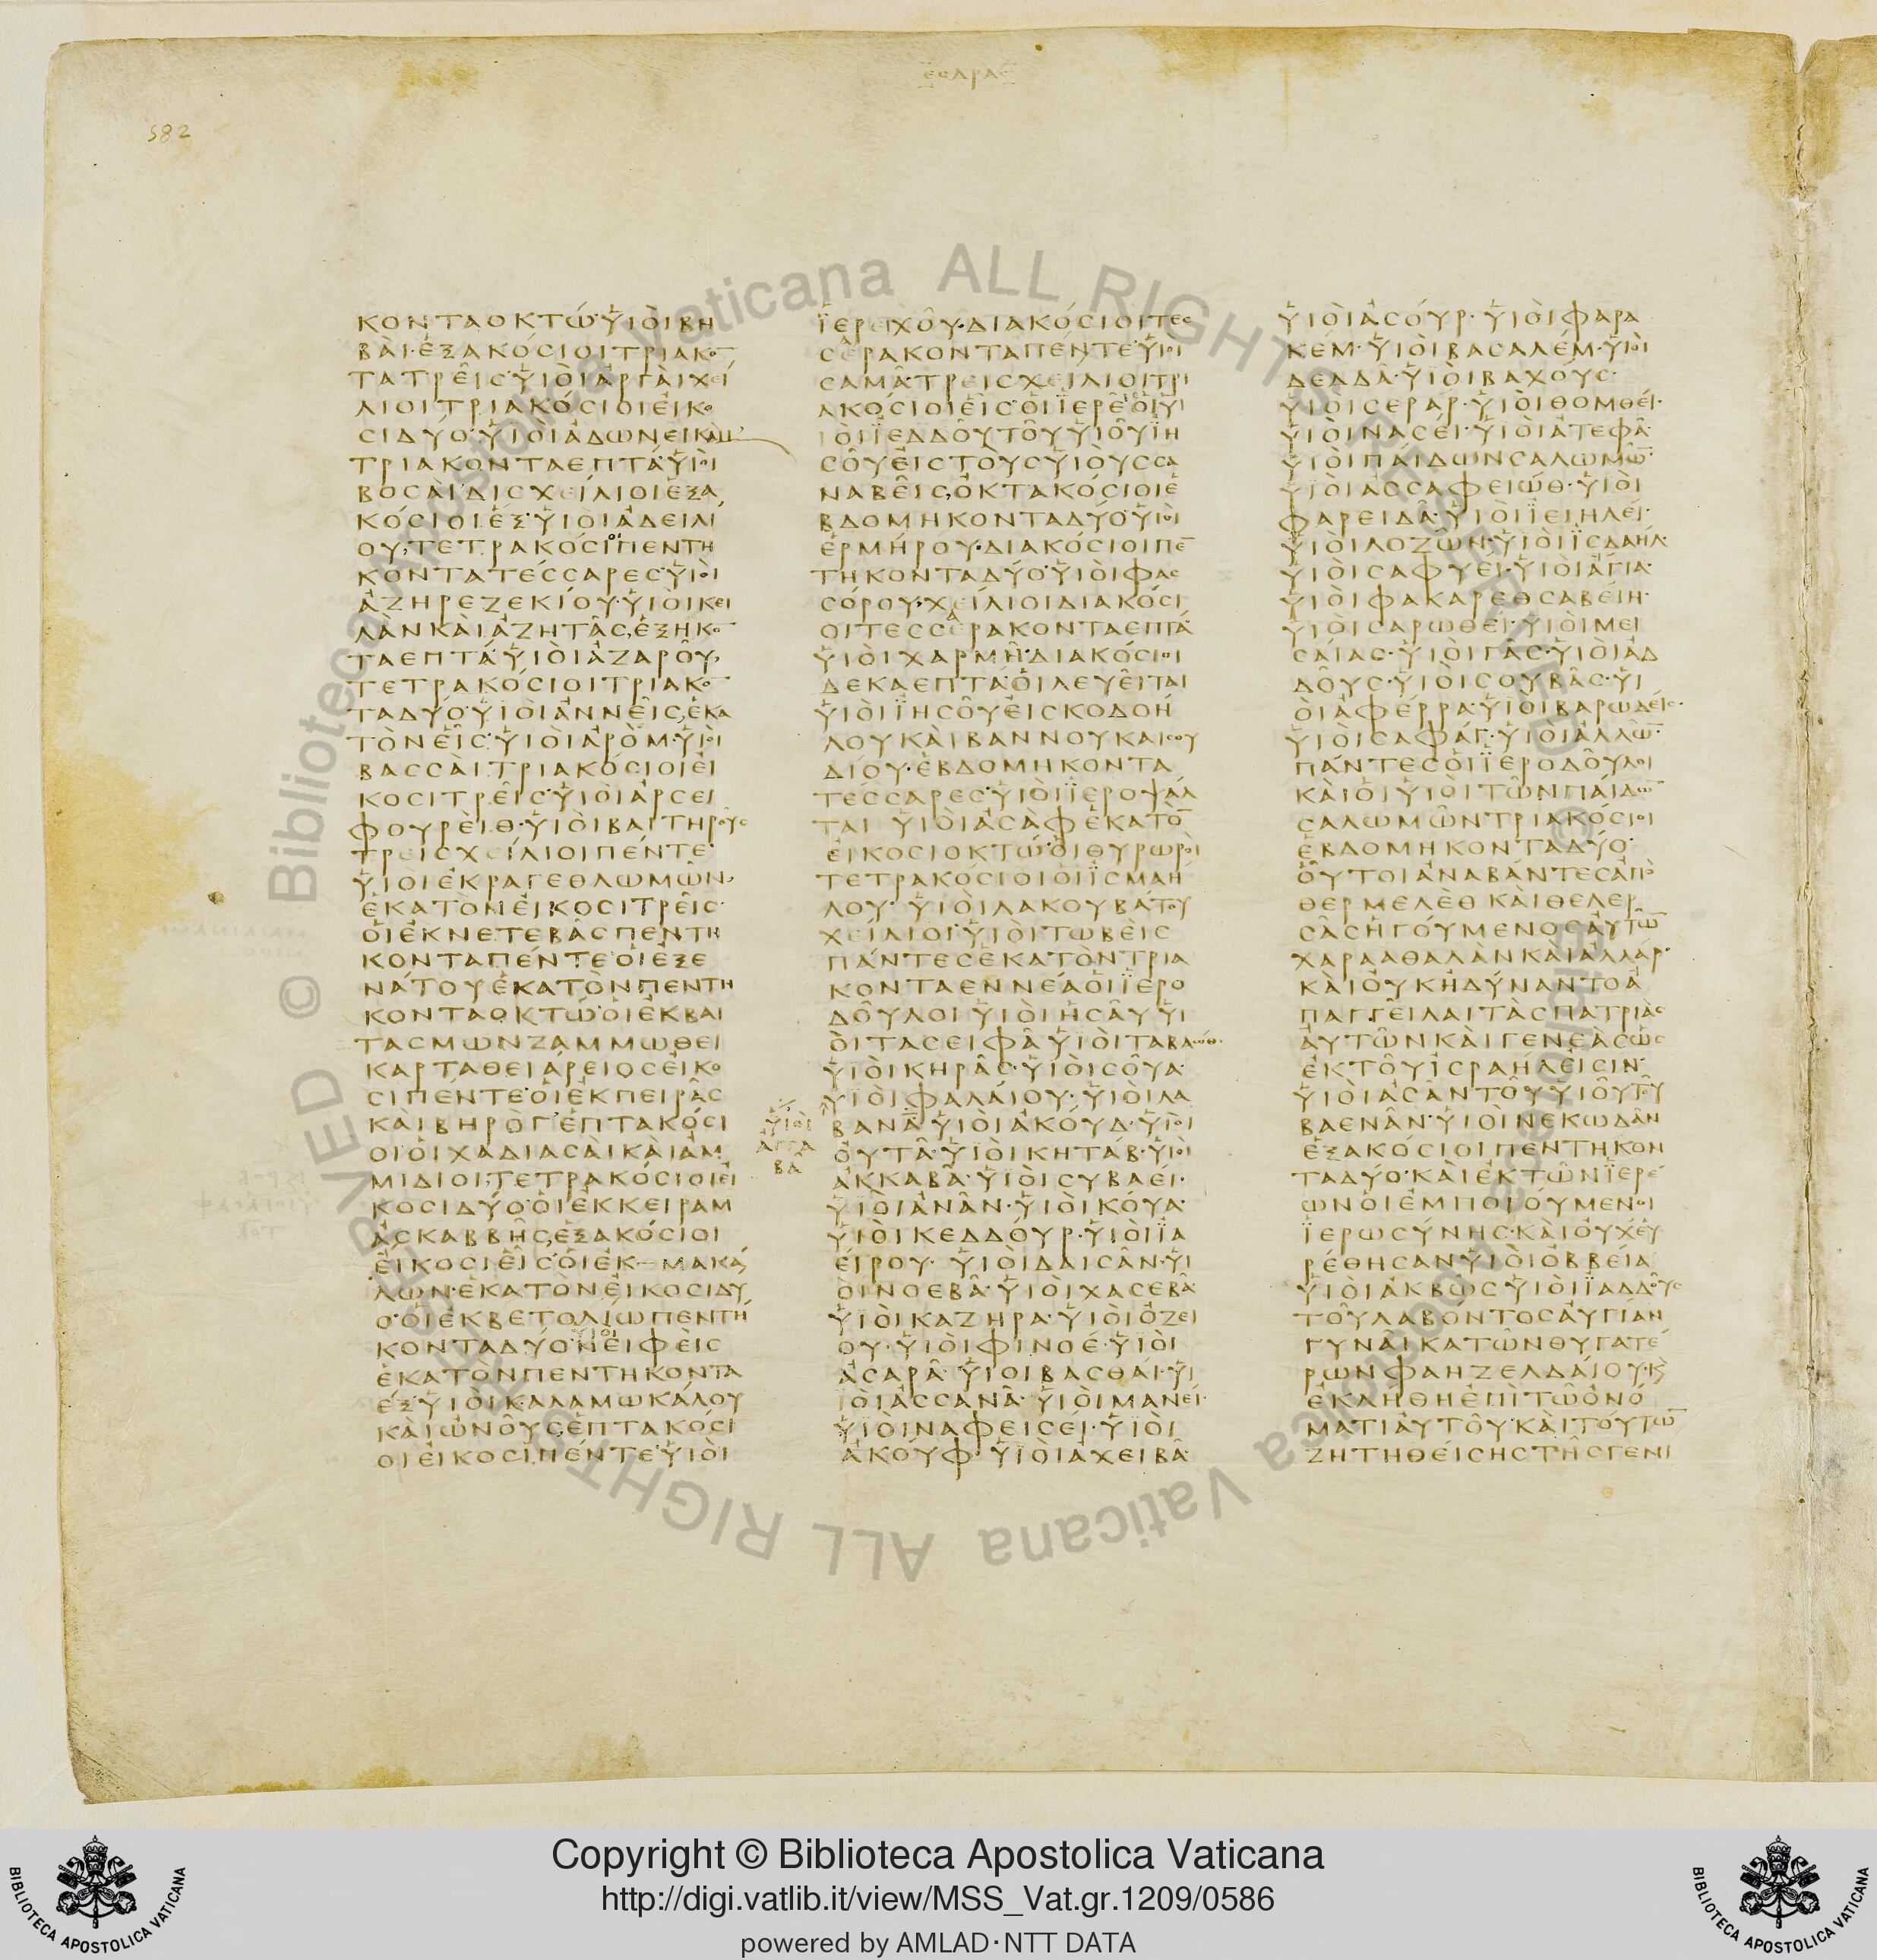 ΕΣΔΡΑΣ
582
ΚΟΝΤΑΟΚΤΩ·ΥΙΟΙΒΗ
ΒΑΙ·ΕΞΑΚΟϹΙΟΙΤΡΙΑΚΟ̅
ΤΑΤΡΕΙϹ·ΥΙΟΙΑΡΓΑΙΧΕΙ
ΛΙΟΙΤΡΙΑΚΟϹΙΟΙΕΙΚΟ
ϹΙΔΥΟ·ΥΙΟΙΑΔΩΝΕΙΚΑΜ
ΤΡΙΑΚΟΝΤΑΕΠΤΑ·ΥΙΟΙ
ΒΟϹΑΙ·ΔΙϹΧΕΙΛΙΟΙΕΞΑ
ΚΟϹΙΟΙΕΞ·ΥΙΟΙΑΔΕΙΛΙ
ΟΥ·ΤΕΤΡΑΚΟϹΙΟΙΠΕΝΤΗ
ΚΟΝΤΑΤΕϹϹΑΡΕϹ·ΥΙΟΙ
ΑΖΗΡΕΖΕΚΙΟΥ·ΥΙΟΙΚΕΙ
ΛΑΝΚΑΙΑΖΗΤΑϹ,ΕΞΗΚΟ̅
ΤΑΕΠΤΑ·ΥΙΟΙΑΖΑΡΟΥ,
ΤΕΤΡΑΚΟϹΙΟΙΤΡΙΑΚΟ̅
ΤΑΔΥΟ·ΥΙΟΙΑΝΝΕΙϹ,ΕΚΑ
ΤΟΝΕΙϹ·ΥΙΟΙΑΡΟΜ·ΥΙΟΙ
ΒΑϹϹΑΙ·ΤΡΙΑΚΟϹΙΟΙΕΙ
ΚΟϹΙΤΡΕΙϹ·ΥΙΟΙΑΡϹΕΙ
ΦΟΥΡΕΙΘ·ΥΙΟΙΒΑΙΤΗΡΟΥϹ
ΤΡΕΙϹΧΕΙΛΙΟΙΠΕΝΤΕ·
ΥΙΟΙΕΚΡΑΓΕΘΛΩΜΩΝ,
ΕΚΑΤΟΝΕΙΚΟϹΙΤΡΕΙϹ·
ΟΙΕΚΝΕΤΕΒΑϹΠΕΝΤΗ
ΚΟΝΤΑΠΕΝΤΕ·ΟΙΕΞΕ
ΝΑΤΟΥΕΚΑΤΟΝΠΕΝΤΗ
ΚΟΝΤΑΟΚΤΩ·ΟΙΕΚΒΑΙ
ΤΑϹΜΩΝΖΑΜΜΩΘΕΙ
ΚΑΡΤΑΘΕΙΑΡΕΙΟϹΕΙΚΟ
ϹΙΠΕΝΤΕ·ΟΙΕΚΠΕΙΡΑϹ
ΚΑΙΒΗΡΟΓΕΠΤΑΚΟϹΙ
ΟΙΟΙΧΑΔΙΑϹΑΙΚΑΙΑΜ
ΜΙΔΙΟΙ·ΤΕΤΡΑΚΟϹΙΟΙΕΙ
ΚΟϹΙΔΥΟ·ΟΙΕΚΚΕΙΡΑΜ
ΑϹΚΑΒΒΗϹ,ΕΞΑΚΟϹΙΟΙ
ΕΙΚΟϹΙΕΙϹ·ΟΙΕΚΜΑΚΑ
ΛΩΝ·ΕΚΑΤΟΝΕΙΚΟϹΙΔΥ
Ο·ΟΙΕΚΒΕΤΟΛΙΩΠΕΝΤΗ
ΚΟΝΤΑΔΥΟ·ΥΙΟΙΝΕΙΦΕΙϹ
ΕΚΑΤΟΝΠΕΝΤΗΚΟΝΤΑ
ΕΞ·ΥΙΟΙΚΑΛΑΜΩΚΑΛΟΥ
ΚΑΙΩΝΟΥϹΕΠΤΑΚΟϹΙ
ΟΙΕΙΚΟϹΙΠΕΝΤΕ·ΥΙΟΙ
ΪΕΡΕΙΧΟΥ·ΔΙΑΚΟϹΙΟΙΤΕϹ
ϹΕΡΑΚΟΝΤΑΠΕΝΤΕ·ΥΙΟΙ
ϹΑΜΑ·ΤΡΕΙϹΧΕΙΛΙΟΙΤΡΙ
ΑΚΟϹΙΟΙΕΙϹ·ΟΙΪΕΡΕΙϹΟΙΥΙ
ΙΟΙΪΕΔΔΟΥΤΟΥΥΙΟΥΪΗ
ϹΟΥΕΙϹΤΟΥϹΥΙΟΥϹϹΑ
ΝΑΒΕΙϹ,ΟΚΤΑΚΟϹΙΟΙΕ
ΒΔΟΜΗΚΟΝΤΑΔΥΟ·ΥΙΟΙ
ΕΡΜΗΡΟΥ·ΔΙΑΚΟϹΙΟΙΠΕ̅
ΤΗΚΟΝΤΑΔΥΟ·ΥΙΟΙΦΑϹ
ϹΟΡΟΥ·ΧΕΙΛΙΟΙΔΙΑΚΟϹΙ
ΟΙΤΕϹϹΕΡΑΚΟΝΤΑΕΠΤΑ
ΥΙΟΙΧΑΡΜΗ·ΔΙΑΚΟϹΙΟΙ
ΔΕΚΑΕΠΤΑ·ΟΙΛΕΥΕΙΤΑΙ
ΥΙΟΙΪΗϹΟΥΕΙϹΚΟΔΟΗ
ΛΟΥΚΑΙΒΑΝΝΟΥΚΑΙϹΟΥ
ΔΙΟΥ·ΕΒΔΟΜΗΚΟΝΤΑ
ΤΕϹϹΑΡΕϹ·ΥΙΟΙΪΕΡΟΨΑΛ
ΤΑΙ ΥΙΟΙΑϹΑΦΕΚΑΤΟ̅
ΕΙΚΟϹΙΟΚΤΩ·ΟΙΘΥΡΩΡΟΙ
ΤΕΤΡΑΚΟϹΙΟΙΟΙΪϹΜΑΗ
ΛΟΥ· ΥΙΟΙΛΑΚΟΥΒΑΤΟΥ
ΧΕΙΛΙΟΙ·ΥΙΟΙΤΩΒΕΙϹ
ΠΑΝΤΕϹΕΚΑΤΟΝΤΡΙΑ
ΚΟΝΤΑΕΝΝΕΑ·ΟΙΪΕΡΟ
ΔΟΥΛΟΙ·ΥΙΟΙΗϹΑΥ·ΥΙ
ΟΙΤΑϹΕΙΦΑ·ΥΙΟΙΤΑΒΑΩΘ·
ΥΙΟΙΚΗΡΑϹ·ΥΙΟΙϹΟΥΑ·
ΥΙΟΙΦΑΛΑΙΟΥ·ΥΙΟΙΛΑ
ΥΙΟΙ
ΑΓΓΑ
ΒΑ
ΒΑΝΑ·ΥΙΟΙΑΚΟΥΔ·ΥΙΟΙ
ΟΥΤΑ·ΥΙΟΙΚΗΤΑΒ·ΥΙΟΙ
ΑΚΚΑΒΑ·ΥΙΟΙϹΥΒΑΕΙ·
ΥΙΟΙΑΝΑΝ·ΥΙΟΙΚΟΥΑ·
ΥΙΟΙΚΕΔΔΟΥΡ·ΥΙΟΙΪΑ
ΕΙΡΟΥ· ΥΙΟΙΔΑΙϹΑΝ·ΥΙ
ΟΙΝΟΕΒΑ·ΥΙΟΙΧΑϹΕΒΑ·
ΥΙΟΙΚΑΖΗΡΑ·ΥΙΟΙΟΖΕΙ
ΟΥ·ΥΙΟΙΦΙΝΟΕ·ΥΙΟΙ
ΑϹΑΡΑ·ΥΙΟΙΒΑϹΘΑΙ·ΥΙ
ΙΟΙΑϹϹΑΝΑ·ΥΙΟΙΜΑΝΕΙ·
ΥΙΟΙΝΑΦΕΙϹΕΙ·ΥΙΟΙ
ΑΚΟΥΦ·ΥΙΟΙΑΧΕΙΒΑ·
ΥΙΟΙΑϹΟΥΡ·ΥΙΟΙΦΑΡΑ
ΚΕΜ·ΥΙΟΙΒΑϹΑΛΕΜ·ΥΙΟΙ
ΔΕΔΔΑ·ΥΙΟΙΒΑΧΟΥϹ·
ΥΙΟΙϹΕΡΑΡ·ΥΙΟΙΘΟΜΘΕΙ·
ΥΙΟΙΝΑϹΕΙ·ΥΙΟΙΑΤΕΦΑ·
ΥΙΟΙΠΑΙΔΩΝϹΑΛΩΜΩ̅·
ΥΙΟΙΑϹϹΑΦΕΙΩΘ·ΥΙΟΙ
ΦΑΡΕΙΔΑ·ΥΙΟΙΪΕΙΗΛΕΙ·
ΥΙΟΙΛΟΖΩΝ·ΥΙΟΙΪϹΔΑΗΛ·
ΥΙΟΙϹΑΦΥΕΙ·ΥΙΟΙΑΓΙΑ·
ΥΙΟΙΦΑΚΑΡΕΘϹΑΒΕΙΗ·
ΥΙΟΙϹΑΡΩΘΕΙ·ΥΙΟΙΜΕΙ
ϹΑΙΑϹ·ΥΙΟΙΓΑϹ·ΥΙΟΙΑΔ
ΔΟΥϹ·ΥΙΟΙϹΟΥΒΑϹ·ΥΙ
ΟΙΑΦΕΡΡΑ·ΥΙΟΙΒΑΡΩΔΕΙϹ·
ΥΙΟΙϹΑΦΑΓ·ΥΙΟΙΑΛΛΩ̅·
ΠΑΝΤΕϹΟΙΪΕΡΟΔΟΥΛΟΙ
ΚΑΙΟΙΥΙΟΙΤΩΝΠΑΙΔΩ̅
ϹΑΛΩΜΩΝΤΡΙΑΚΟϹΙΟΙ
ΕΒΔΟΜΗΚΟΝΤΑΔΥΟ·
ΟΥΤΟΙΑΝΑΒΑΝΤΕϹΑΠΟ
ΘΕΡΜΕΛΕΘΚΑΙΘΕΛΕΡ
ϹΑϹΗΓΟΥΜΕΝΟϹΑΥΤΩ̅
ΧΑΡΑΑΘΑΛΑΝΚΑΙΑΛΛΑΡ·
ΚΑΙΟΥΚΗΔΥΝΑΝΤΟΑ
ΠΑΓΓΕΙΛΑΙΤΑϹΠΑΤΡΙΑϹ
ΑΥΤΩΝΚΑΙΓΕΝΕΑϹΩϹ
ΕΚΤΟΥΙϹΡΑΗΛΕΙϹΙΝ·
ΥΙΟΙΑϹΑΝΤΟΥΥΙΟΥΤΟΥ
ΒΑΕΝΑΝ·ΥΙΟΙΝΕΚΩΔΑΝ
ΕΞΑΚΟϹΙΟΙΠΕΝΤΗΚΟΝ
ΤΑΔΥΟ·ΚΑΙΕΚΤΩΝΪΕΡΕ
ΩΝΟΙΕΜΠΟΙΟΥΜΕΝΟΙ
ΪΕΡΩϹΥΝΗϹ·ΚΑΙΟΥΧΕΥ
ΡΕΘΗϹΑΝΥΙΟΙΟΒΒΕΙΑ
ΥΙΟΙΑΚΒΩϹΥΙΟΙΪΑΔΔΟΥϹ
ΤΟΥΛΑΒΟΝΤΟϹΑΥΓΙΑΝ
ΓΥΝΑΙΚΑΤΩΝΘΥΓΑΤΕ
ΡΩΝΦΑΗΖΕΛΔΑΙΟΥ·Κ
ΕΚΛΗΘΗΕΠΙΤΩΟΝΟ
ΜΑΤΙΑΥΤΟΥ·ΚΑΙΤΟΥΤΩ̅
ΖΗΤΗΘΕΙϹΗϹΤΗϹΓΕΝΙ
© Biblioteca Apostolica Vaticana ALL RIGHTS RESERVED
© Biblioteca Apostolica Vaticana ALL RIGHTS RESERVED
BIBLIOTECA APOSTOLICA VATICANA
Copyright © Biblioteca Apostolica Vaticana
http://digi.vatlib.it/view/MSS_Vat.gr.1209/0586
powered by AMLAD·NTT DATA
BIBLIOTECA APOSTOLICA VATICANA